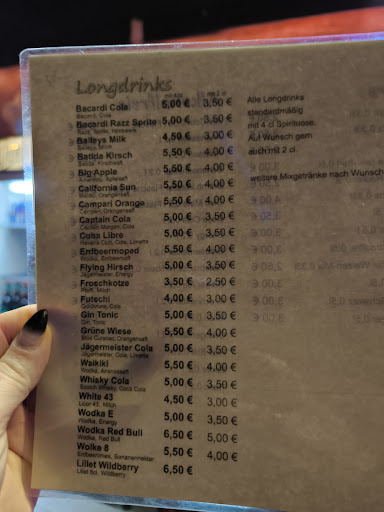 Longdrinks
mit 4cl mit 2 cl
Bacardi Cola 5,00 € 3,50 €
Bacardi, Cola
Bacardi Razz Sprite 5,00 € 3,50 €
Razz, Sprite, Himbeere
Baileys Milk 4,50 € 3,00 €
Baileys, Milch
Batida Kirsch 5,50 € 4,00 €
Batida, Kirschsaft
Big Apple 5,50 € 4,00 €
Amaretto, Apfelsaft
California Sun 5,50 € 4,00 €
Malibu, Orangensaft
Campari Orange 5,50 € 4,00 €
Campari, Orangensaft
Captain Cola 5,00 € 3,50 €
Captain Morgan, Cola
Cuba Libre 5,50 € 4,00 €
Havana Club, Cola, Limette
Erdbeermoped 5,50 € 4,00 €
Wodka, Erdbeerlimes
Flying Hirsch 5,00 € 3,50 €
Jägermeister, Energy
Froschkotze 5,00 € 3,50 €
Pfeffi, Milch
Futschi 4,00 € 3,00 €
Goldkrone, Cola
Gin Tonic 5,00 € 3,50 €
Gin, Tonic
Grüne Wiese 5,50 € 4,00 €
Blue Curacao, Orangensaft
Jägermeister Cola 5,00 € 3,50 €
Jägermeister, Cola, Limette
Waikiki 5,50 € 4,00 €
Wodka, Ananassaft
Whisky Cola 5,00 € 3,50 €
Scotch Whisky, Coca Cola
White 43 4,50 € 3,00 €
Licor 43, Milch
Wodka E 5,00 € 3,50 €
Wodka, Energy
Wodka Red Bull 6,50 € 5,00 €
Wodka, Red Bull
Wolke 8 5,50 € 4,00 €
Erdbeerlimes, Bananennektar
Lillet Wildberry 6,50 €
Lillet 5cl, Wildberry
Alle Longdrinks
standardmäßig
mit 4 cl Spirituose.
Auf Wunsch gern
auch mit 2 cl.
weitere Mixgetränke nach Wunsch